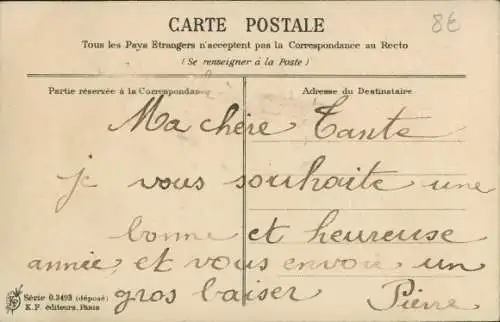 CARTE POSTALE
8€
Tous les Pays Etrangers n'acceptent pas la Correspondance au Recto
(Se renseigner à la Poste)
Partie réservée à la Correspondance
Adresse du Destinataire
Ma chère Tante
je vous souhaite une
bonne et heureuse
année, et vous envoie un
gros baiser Pierre
Série 0.3493 (déposé)
K.F. éditeurs, Paris